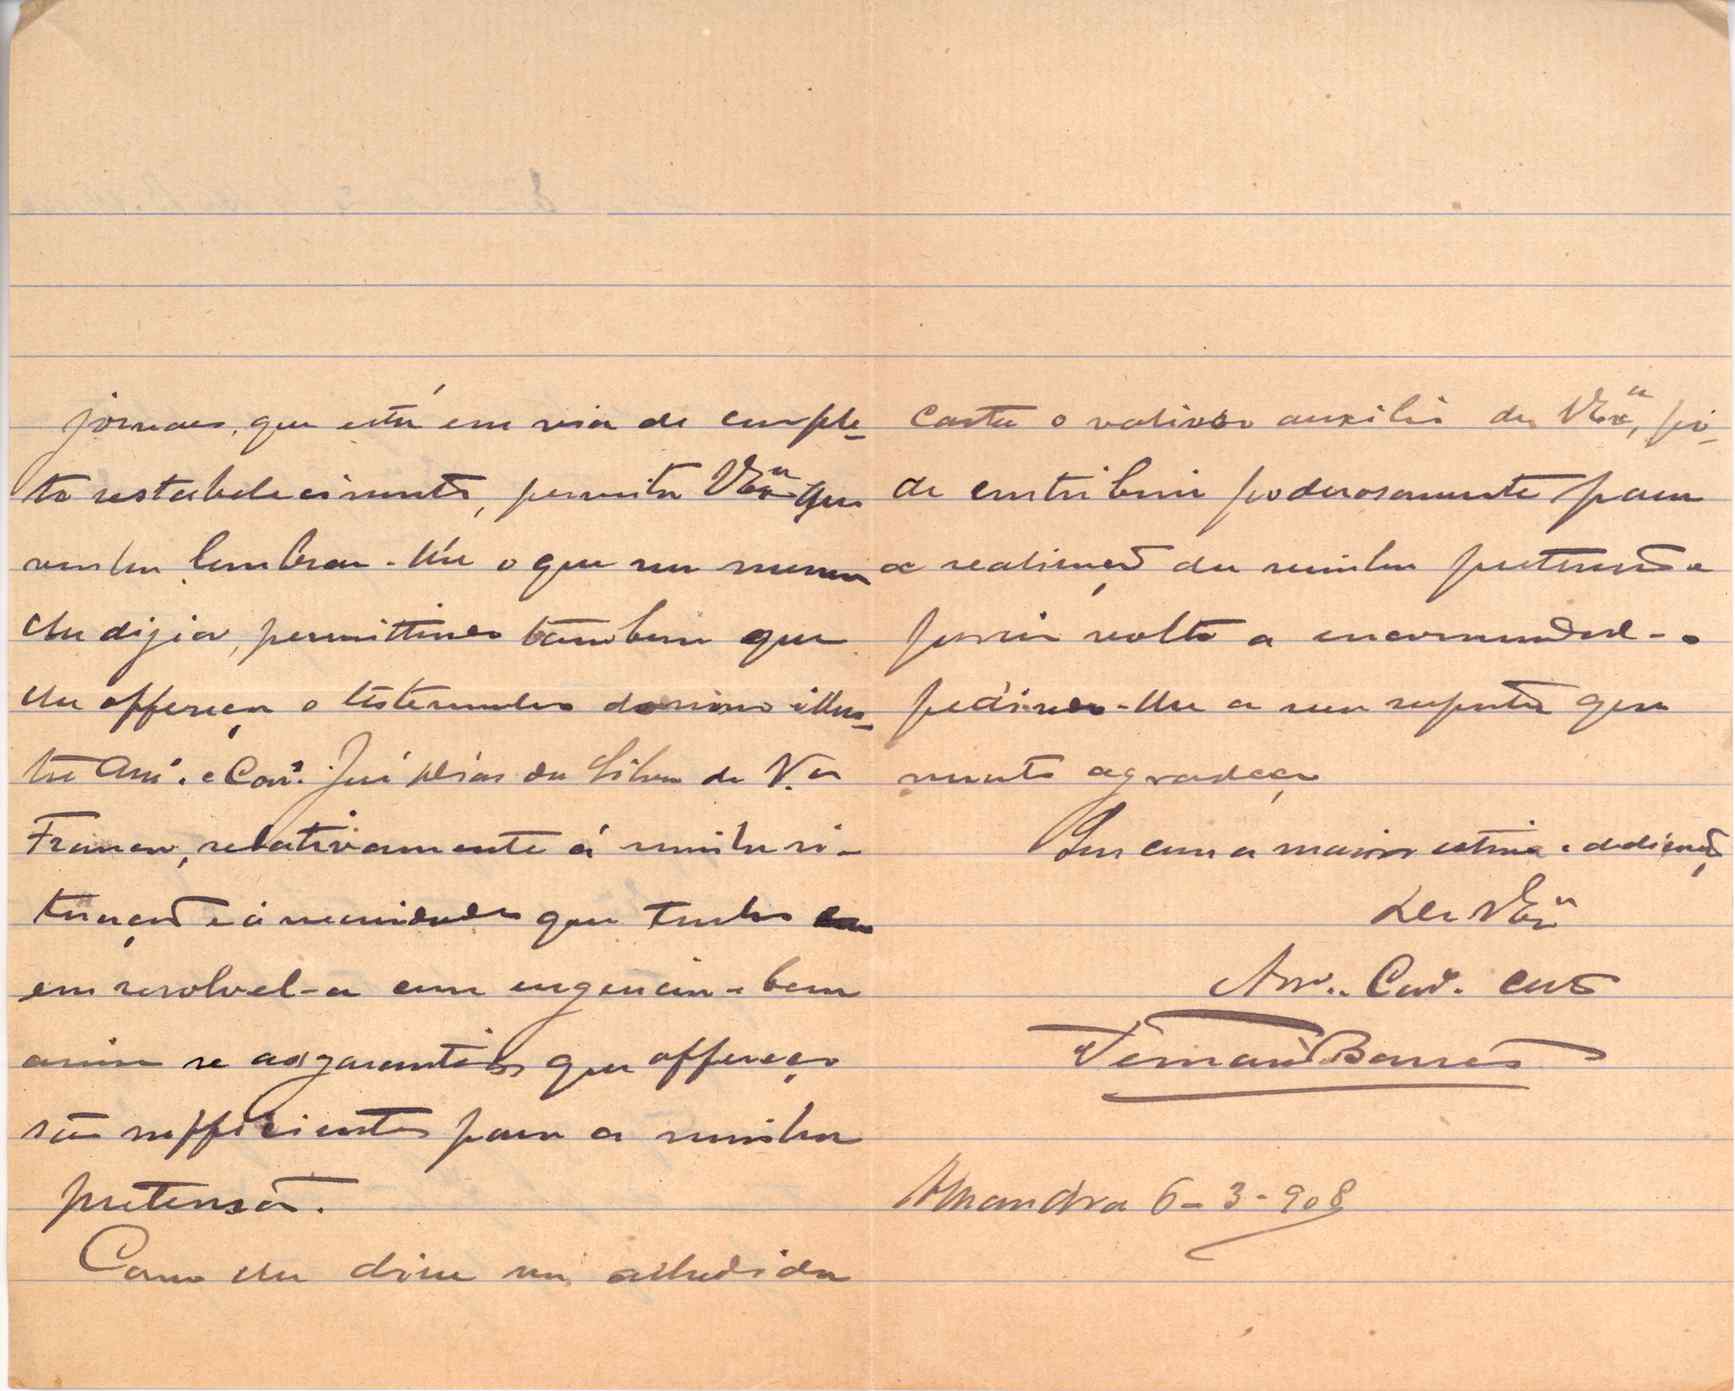 jornaes, que está em via de comple-
to restabelecimento, permita V Exª que
venha lembrar-lhe o que na mesma
lhe dizia, permittindo tambem que
lhe offereça o testemunho do nosso illus-
tre Amº. e Corrº. José Dias da Silva de V.ª
Franca, relativamente á minha si-
tuação e á necessidade que tenho
em resolvel-a com urgencia e bem
assim se as garantias que offereço
são sufficientes para a minha
pretensão.
Como lhe disse na alludida
carta o valioso auxilio de V Exª, pó-
de contribuir poderosamente para
a realisação da minha pretensão e
por isso volto a encommodal-o
pedindo-lhe a sua resposta que
muito agradeço
Sou com a maior estima e dedicação
De V Exª
Amº. Corrº. certo
Barros
Alhandra 6-3-908